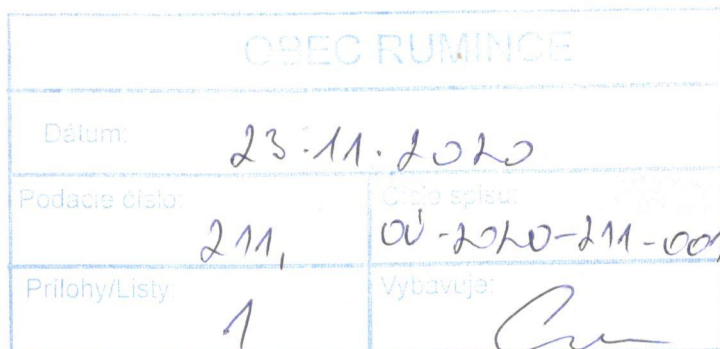 OBEC RUMINCE
Dátum: 23.11.2020
Podacie číslo: 211,
Číslo spisu: OÚ-2020-211-001
Prílohy/Listy: 1
Vybavuje: